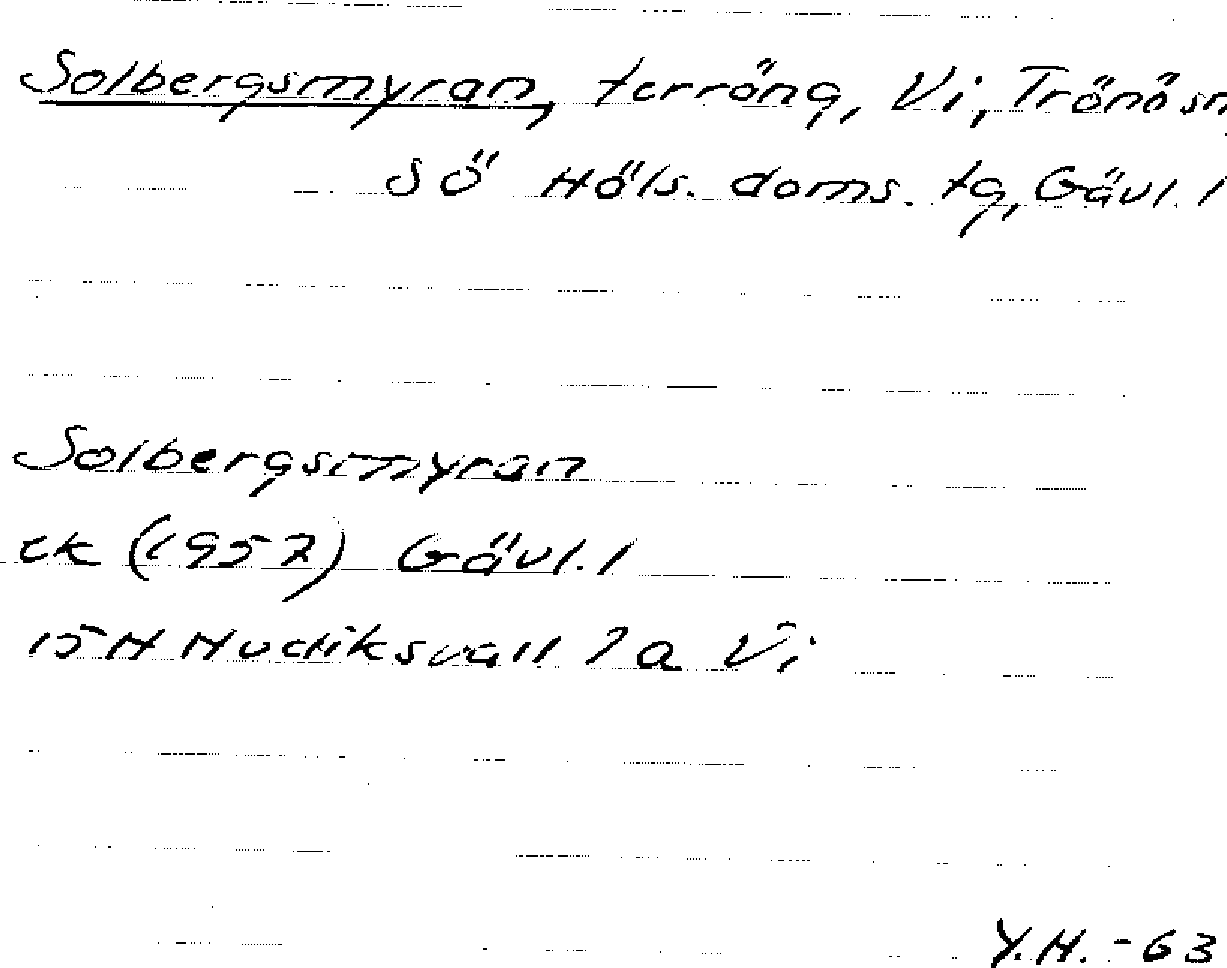 Solbergsmyran, terräng, Vi, Tränäsn
SÖ Häls. doms. tg, Gävl. l
Solbergsmyran
ek (1957) Gävl. l
15H Hudiksvall 7a Vi
Y.H. -63